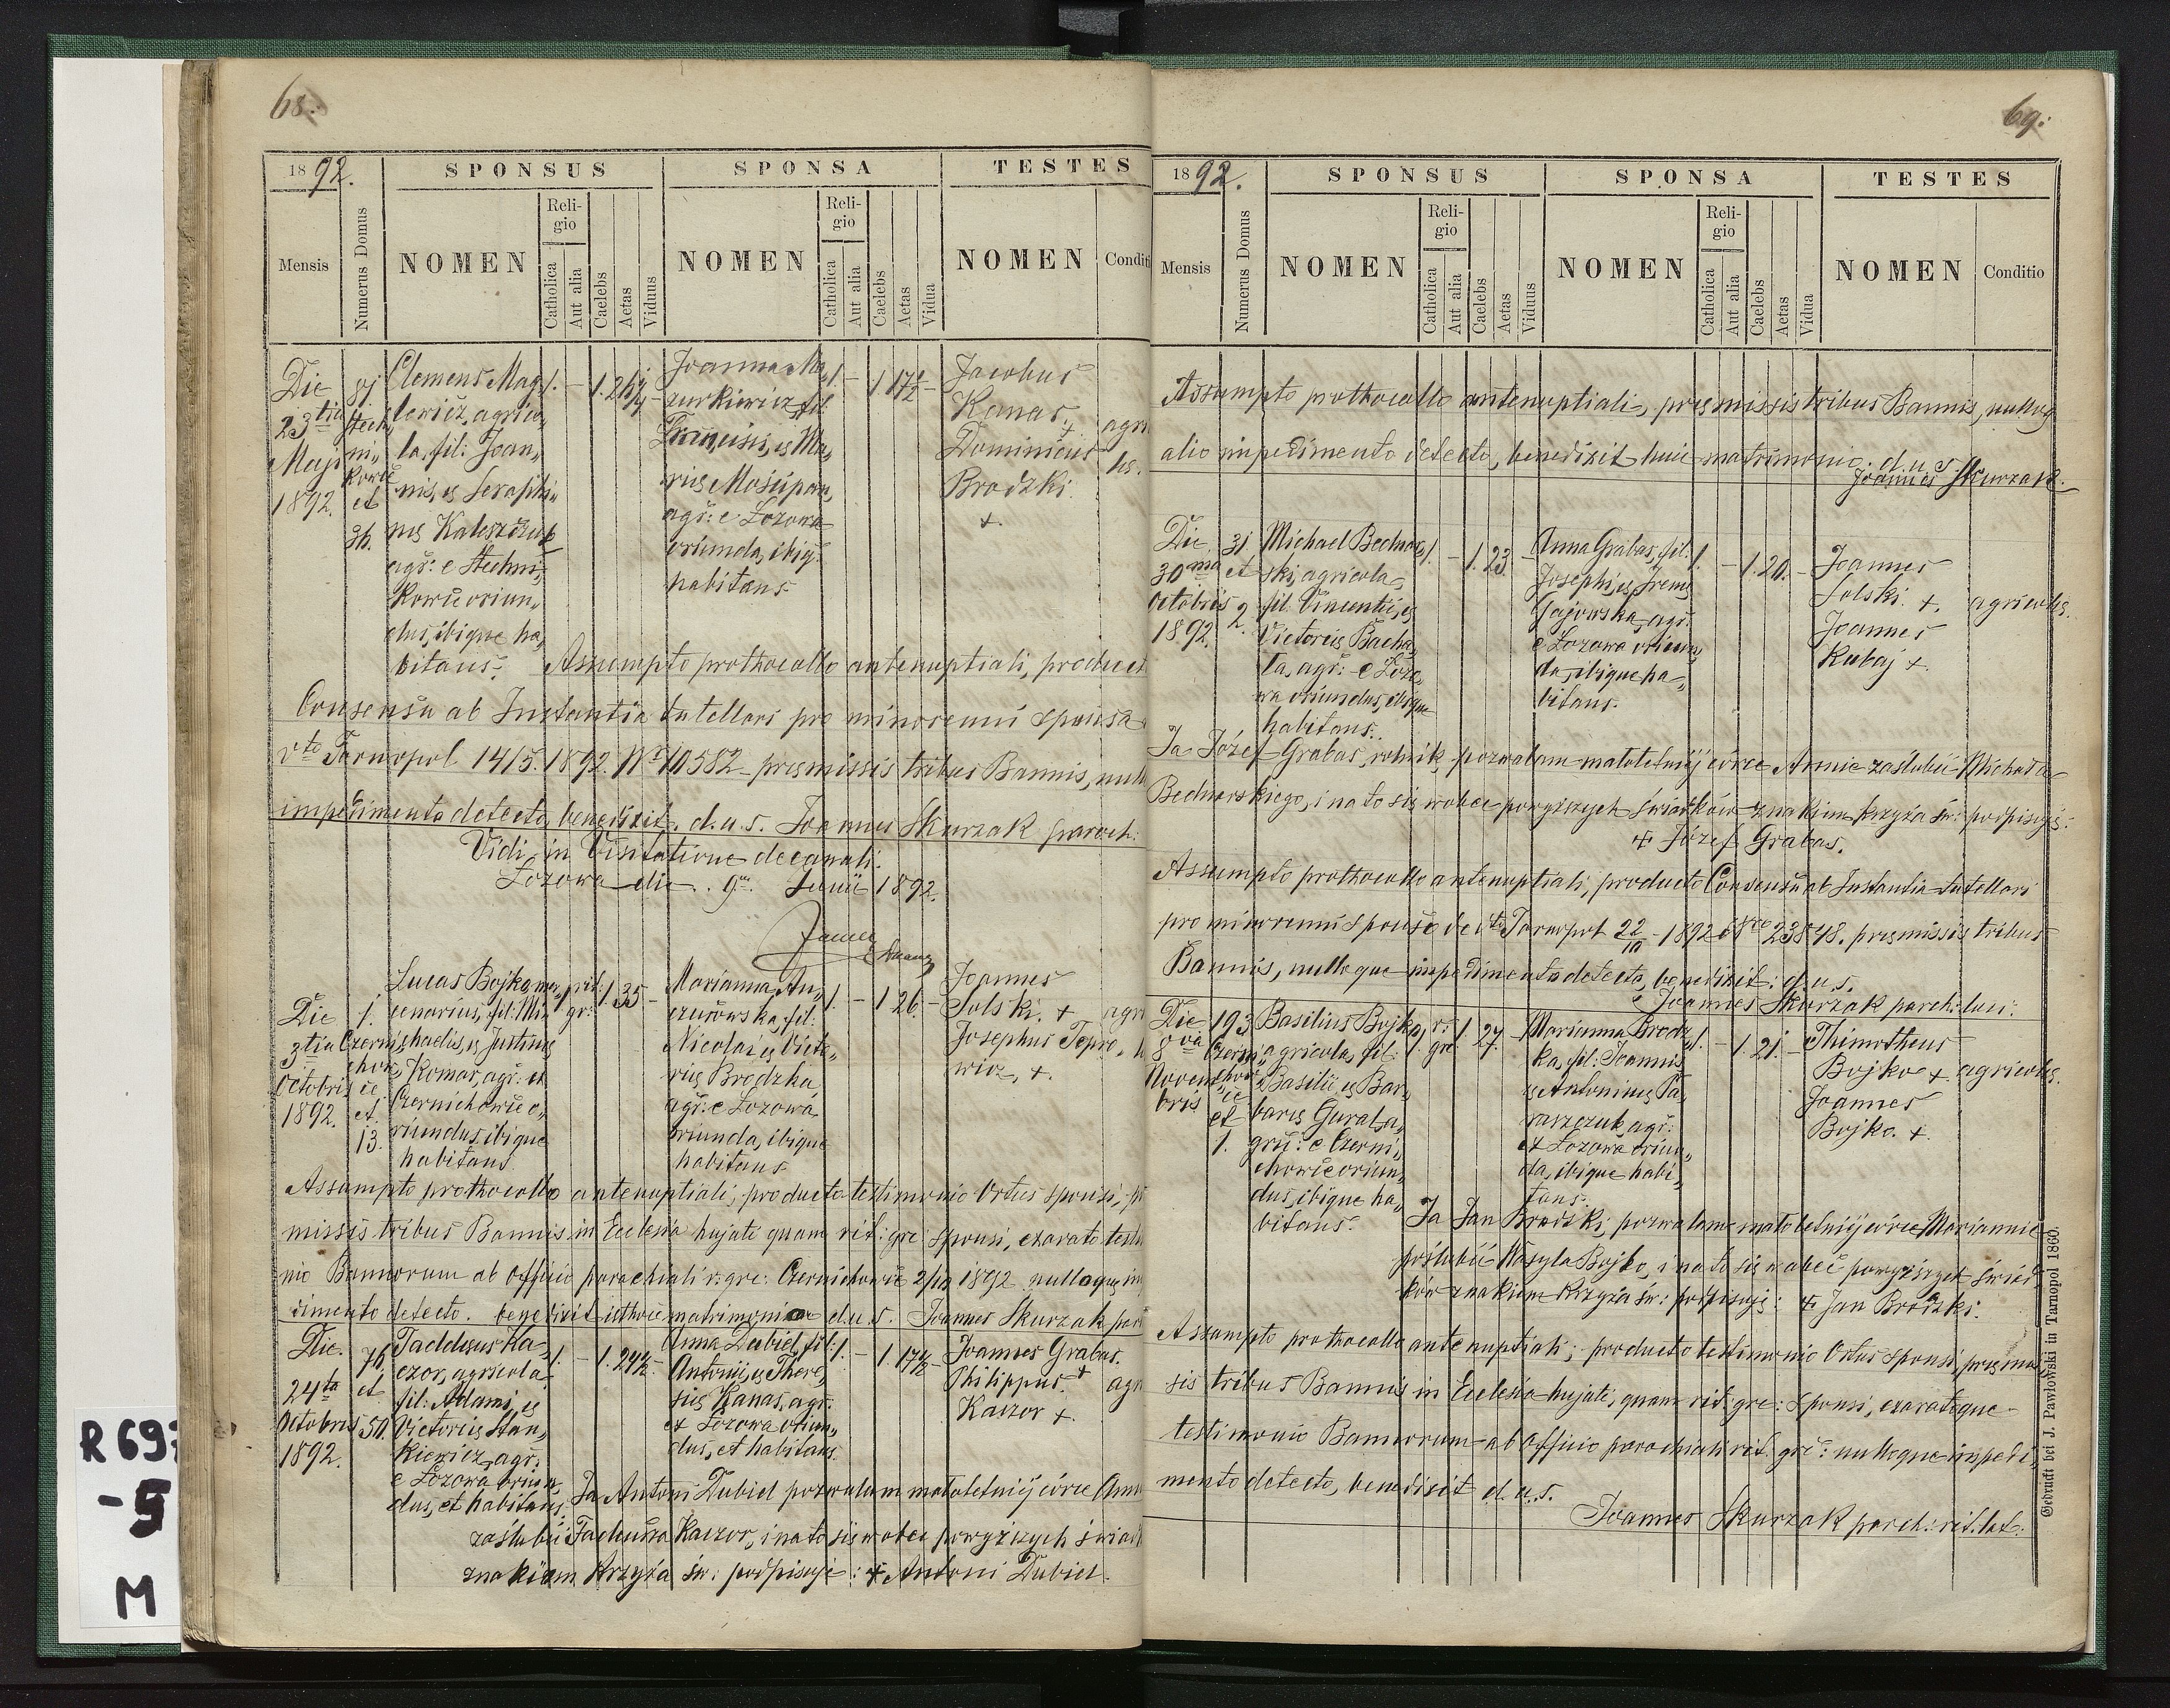 68.
1892.
SPONSUS
SPONSA
TESTES
Mensis
Numerus Domus
NOMEN
Religio
Catholica
Aut alia
Caelebs
Aetas
Viduus
NOMEN
Religio
Catholica
Aut alia
Caelebs
Aetas
Vidua
NOMEN
Conditi
Die
23tia
Maji
1892.
et
36.
Clemens Mag
lewicz, agrico„
la, fil: Joan„
nis, et Seraphi„
nae
agr: e Stechni„
kowce oriun„
dus, ibique ha„
bitans.
1. – 1.
Joanna Ma„
zurkiewicz, fil:
Francisci, et Ma„
riae
agr: e Łozowa
oriunda, ibiq:
habitans
1. – 1 17½ –
Jacobus
Kanas +
Dominicus
Brodzki
+.
Assumpto prothocollo antenuptiali, product
Consensu ab Instantia tutellari pro minorenni sponsa
dto Tarnopol 14/5. 1892. Nr 10582 praemissis tribus Bannis, null
impedimento detecto, benedixit. d.u.s. Joannes Skurzak paroch:
Vidi in Visitatione decanali.
Łozowa die 9a Junii 1892.
Die
3tia
Octobris
1892.
1.
Czerni„
chow„
ce
et
13.
Lucas Bojko, mer„
cenarius, fil: Mi„
chaelis, et Justinae
Komar, agr: et
Czernichowce o„
riundus, ibique
habitans
1. rit: gr: 1. 35 –
Marianna An„
czurowska, fil:
Nicolai et Victo„
riae Brodzka
agr: e Łozowa
oriunda, ibique
habitans
1. – 1 26. –
Joannes
Solski. +
Josephus
wicz, +.
Assumpto prothocollo antenuptiali, producto testimonio Ortus sponsi, p
missis tribus Bannis in Ecclesia hujate quam rit: gre sponsi, exarato testi
nio Bannorum ab Officio parochiali r: gre: Czernichowce 2/10 1892 nulloque im
dimento detecto. benedixit ithoic matrimonio d.u.s. Joannes Skurzak par
Die
24ta
Octobris
1892.
76.
et
50.
Taddaeus Ka„
czor, agricola,
fil: Adami, et
Victoriae Stan„
kiewicz, agr:
e Łozowa oriun„
dus, et habitans.
1. – 1. 24½. –
Anna Dubiel, fil:
Antonii, et There„
siae Kanas, agr:
ex Łozowa oriun„
dus, et habitans.
1. – 1 17½ –
Joannes Grabas.
+
Philippus
Kaczor +.
Ja Antoni Dubiel pozwalam małoletniej córce Ann
zaślubić Tadeusza Kaczor, i na to się wobec powyższych świad
znakiem krzyża św: podpisuje: + Antoni Dubiel.
69.
1892.
SPONSUS
SPONSA
TESTES
Mensis
Numerus Domus
NOMEN
Religio
Catholica
Aut alia
Caelebs
Aetas
Viduus
NOMEN
Religio
Catholica
Aut alia
Caelebs
Aetas
Vidua
NOMEN
Conditio
Assumpto prothocollo antenuptiali, praemissis tribus Bannis, nulloq
alio impedimento detecto, benedixit huic matrimonio. d.u.s.
Joannes Skurzak.
Die
30ma
Octobris
1892.
31
et
2.
Michael Bednar„
ski, agricola,
fil: Vincentii, et
Victoriae Bacha„
ta, agr: e Łozo„
wa oriundus, ibique
habitans.
1. – 1. 23. –
Anna Grabas, fil:
Josephi, et Irenae
Gajowska, agr:
e Łozowa oriun„
da, ibique ha„
bitans.
1. – 1. 20. –
Joannes
Solski. +.
Joannes
Kubaj +.
agricolae.
Ja Józef Grabas, rolnik, pozwalam małoletniej córce Annie zaślubić Michała
Bednarskiego, i na to się wobec powyższych świadków znakiem krzyża św: podpisuję:
+ Józef Grabas.
Assumpto prothocollo antenuptiali, producto Consensu ab Instantia tutellari
pro minorenni sponso de dto Tarnopol 22/10 1892 23848. praemissis tribus
Bannis, nulloque impedimento detecto, benedixit: d.u.s.
Joannes Skurzak parch: loci:
Die
8va
Novem„
bris
193
Czerni„
chow„
ce
et
1.
Basilius Bojko,
agricola, fil:
Basilii et Bar„
barae Gural, a„
gr: e Czerni„
chowce oriun„
dus, ibique ha„
bitans.
1. r: gre 1. 27. –
Marianna Brodz„
ka, fil: Joannis
et Antoninae Pa„
raszczuk, agr:
ex Łozowa oriun„
da, ibique habi„
tans.
1. – 1. 21. –
Thimotheus
Bojko +
Joannes
Bojko. +.
agricolae.
Ja Jan Brodzki, pozwalam małoletniej córce Mariannie
poślubić Wasyla Bojko, i na to się wobec powyższych świad
ków znakiem krzyża św: podpisuję: + Jan Brodzki.
Assumpto prothocollo antenuptiali; producto testimonio Ortus sponsi, praemis„
sis tribus Bannis in Ecclesia hujate, quam rit: gre: sponsi, exaratoque
testimonio Bannorum ab Officio parochiali rit. gre: nulloque impedi„
mento detecto, benedixit d.u.s.
Joannes Skurzak parch: rit. lat:
Gedruckt bei J. Pawłowski in Tarnopol 1860.
R 697
-5
M